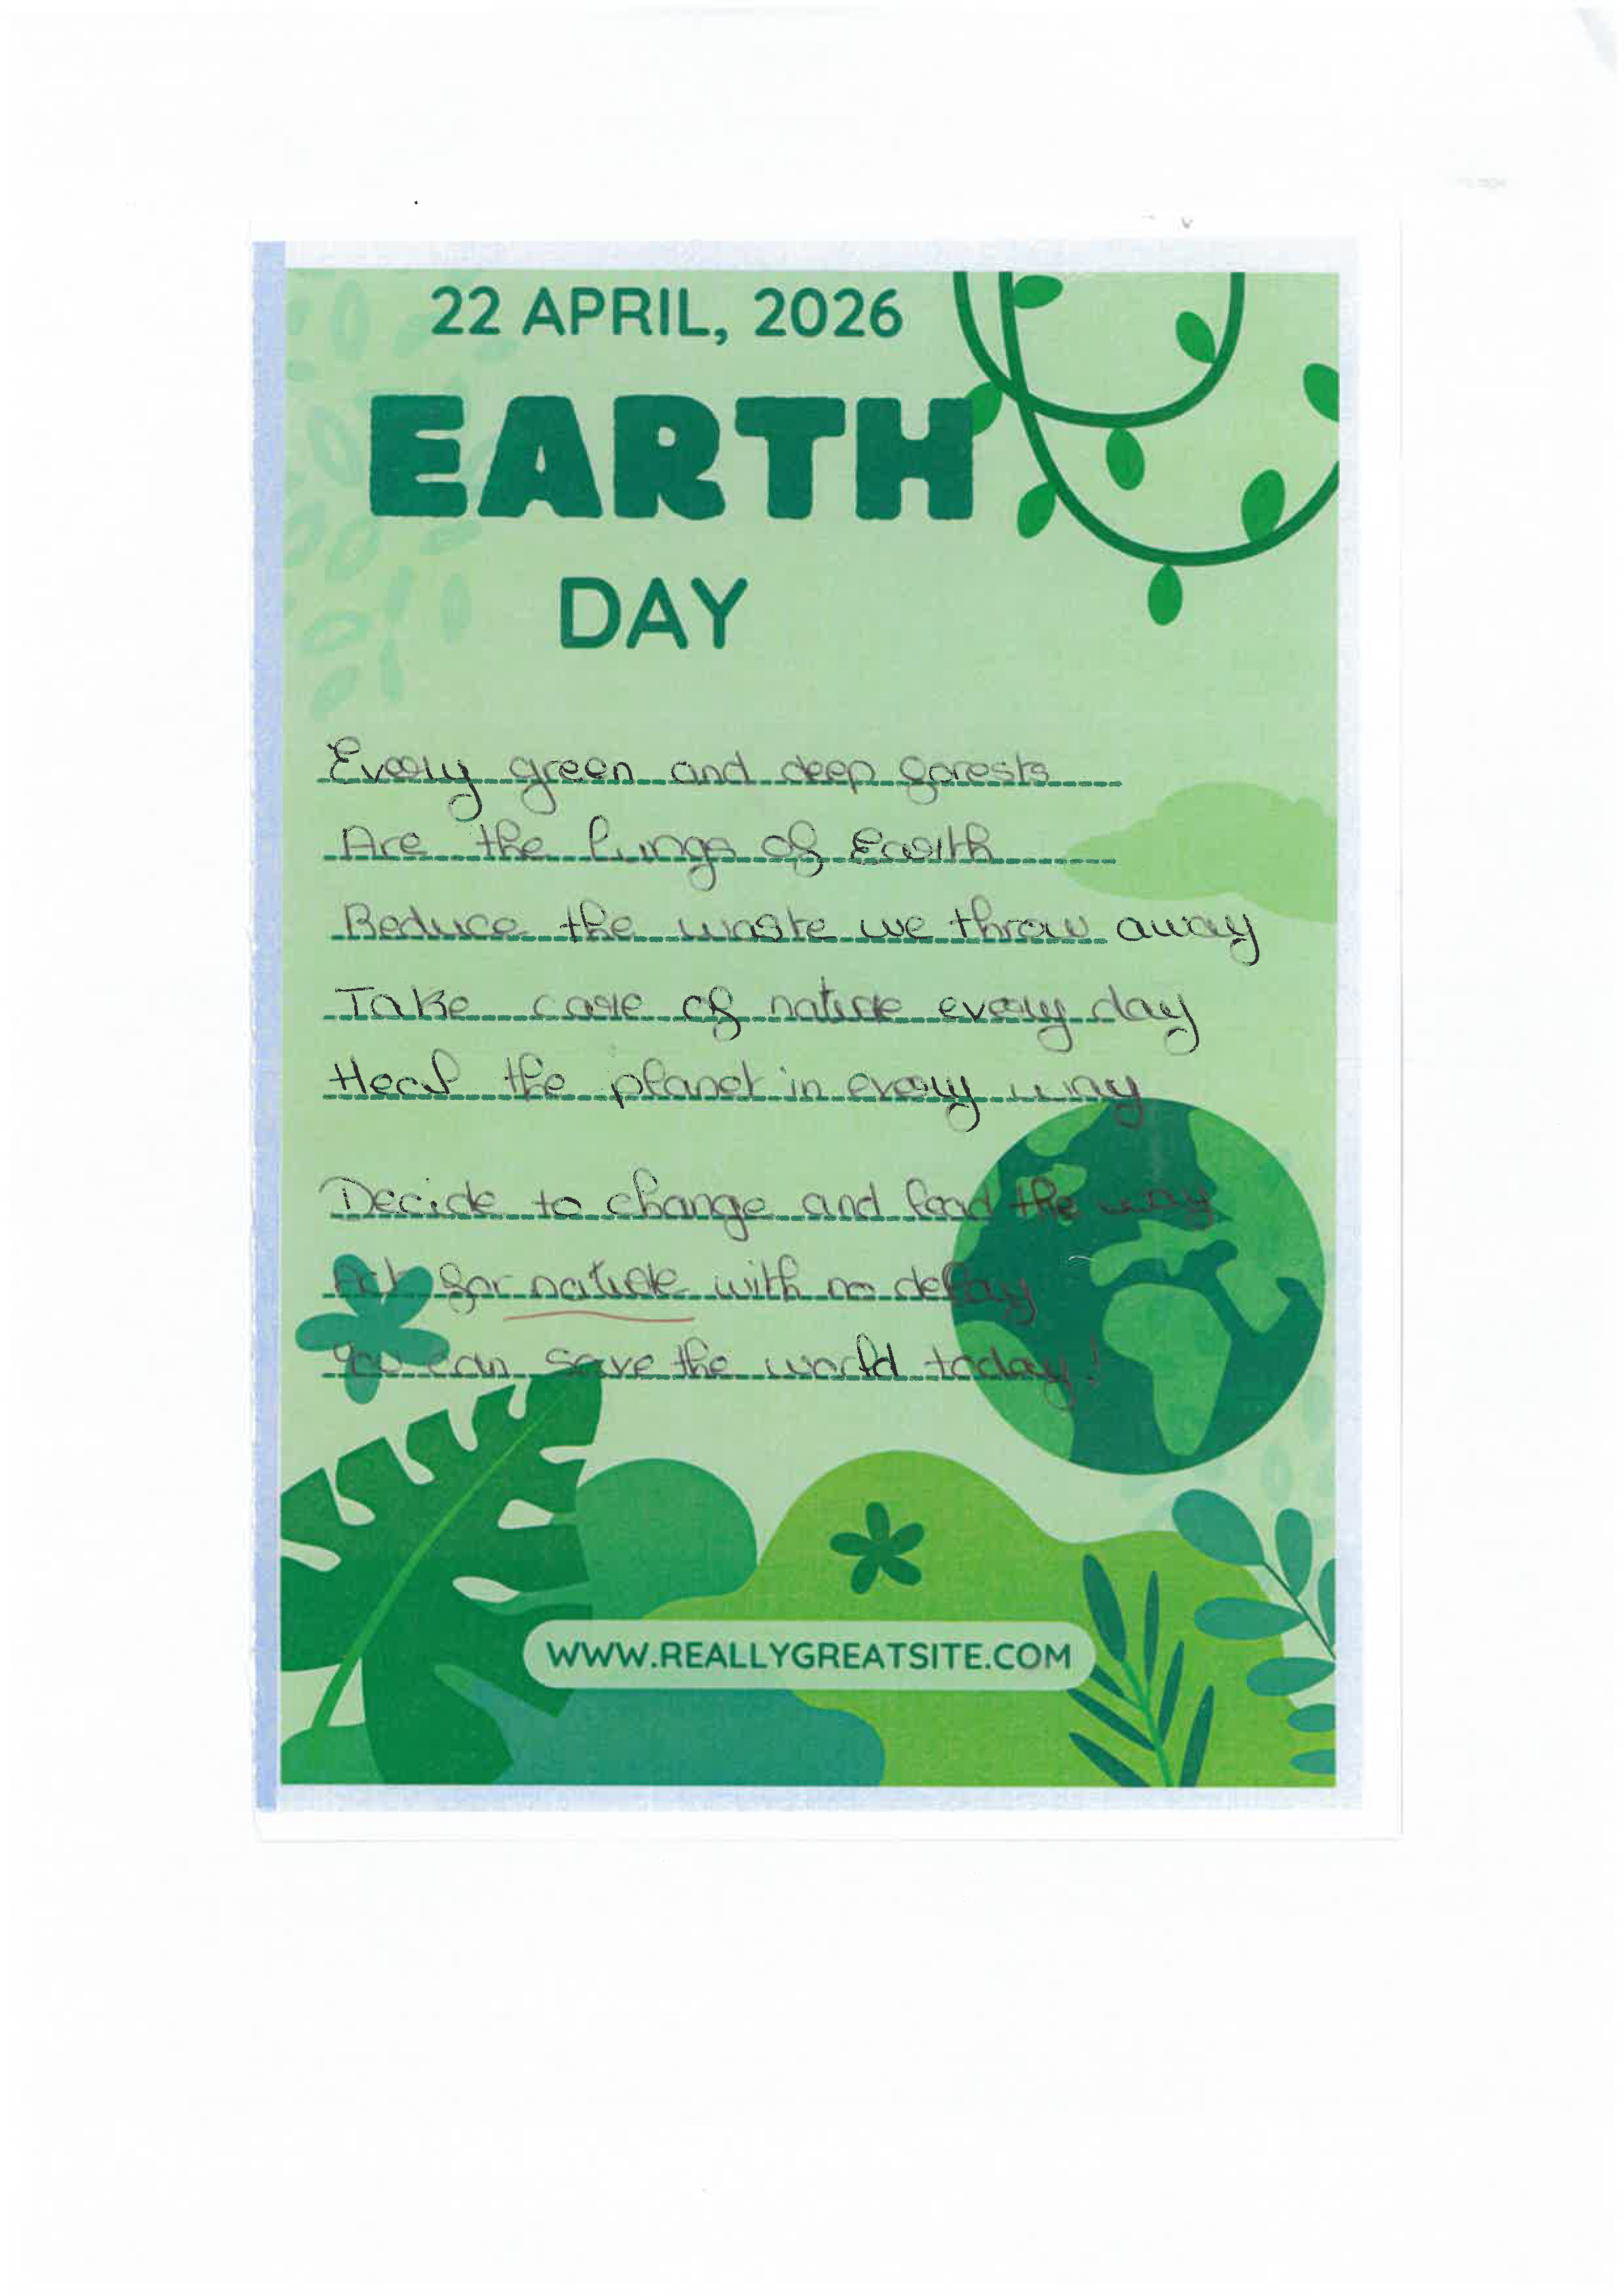 22 APRIL, 2026
EARTH
DAY
Every green and deep forests
Are the lungs of Earth
Reduce the waste we throw away
Take care of nature every day
Heal the planet in every way
Decide to change and lead the way
Act for nature with no delay
You can save the world today!
WWW.REALLYGREATSITE.COM